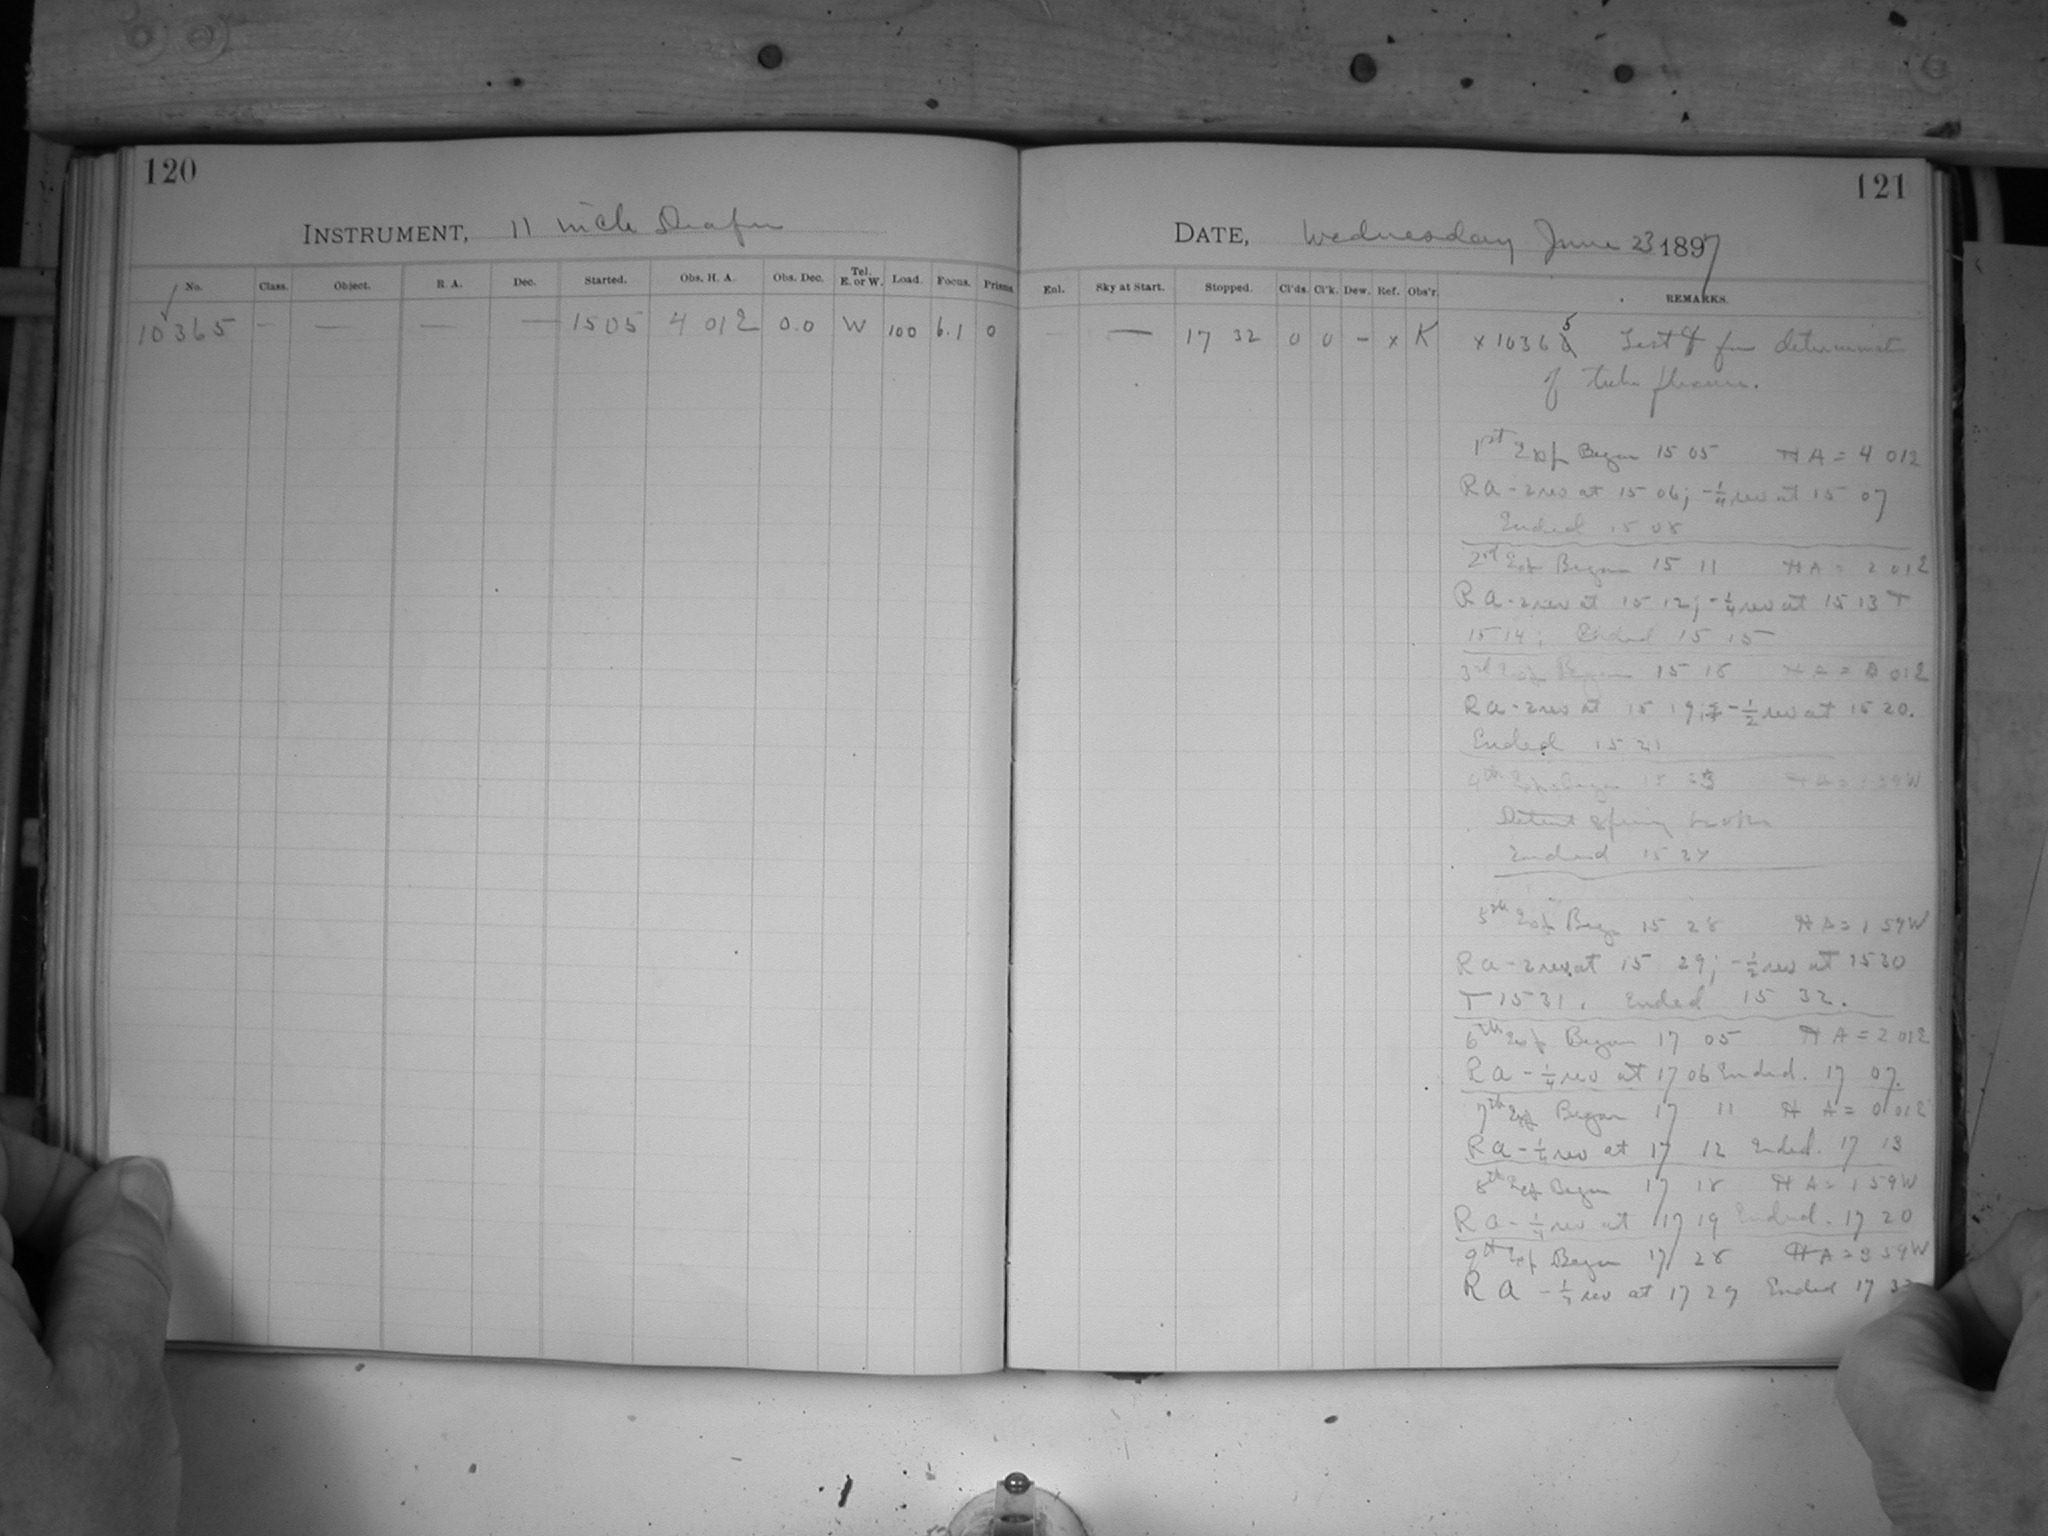 120
INSTRUMENT, 11 inch Draper
No. Class. Object. R. A. Dec. Started. Obs. H. A. Obs. Dec. Tel. E. or W. Load. Focus. Prisms.
10365 — — — — 15 05 4 01E 0.0 W 100 6.1 0
121
DATE, Wednesday June 23 1897
Enl. Sky at Start. Stopped. Cl'ds. Cl'k. Dew. Ref. Obs'r. REMARKS.
— 17 32 0 0 – x K x 10365 Test for determinat
of tube flexure.
1st Exp Began 15 05 HA = 4 01E
RA - 2 rev at 15 06; -¼ rev at 15 07
Ended 15 08
2nd Exp Began 15 11 HA = 2 01E
RA - 2 rev at 15 12; -¼ rev at 15 13 +
15 14; Ended 15 15
3rd Exp Began 15 18 HA = 0 01E
RA - 2 rev at 15 19; -½ rev at 15 20.
Ended 15 21
4th Exp began 15 23 HA = 1 59W
Detent spring broke
Ended 15 27
5th Exp Began 15 28 HA = 1 59W
RA - 2 rev at 15 29; -½ rev at 15 30
+ 15 31. Ended 15 32.
6th Exp Began 17 05 HA = 2 01E
RA - ¼ rev at 17 06 Ended. 17 07.
7th Exp Began 17 11 HA = 0 01E
RA - ¼ rev at 17 12 Ended. 17 13
8th Exp Began 17 18 HA = 1 59W
RA - ¼ rev at 17 19 Ended. 17 20
9th Exp Began 17 28 HA = 3 59W
RA - ¼ rev at 17 29 Ended 17